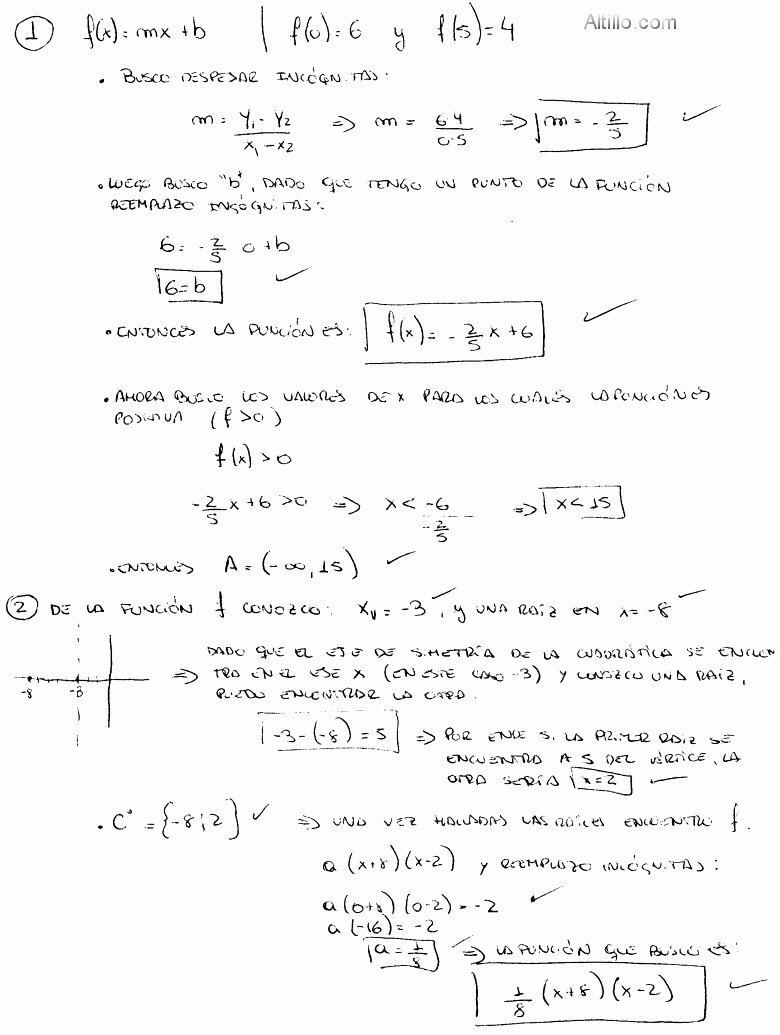 Altillo.com
① f(x) = mx + b | f(0) = 6 y f(5) = 4
• BUSCO DESPEJAR INCÓGNITAS:
m = (y₁ - y₂)/(x₁ - x₂) ⇒ m = (6-4)/(0-5) ⇒ m = -2/5 ✓
• LUEGO BUSCO "b", DADO QUE TENGO UN PUNTO DE LA FUNCIÓN
REEMPLAZO INCÓGNITAS:
6 = -2/5 0 + b
6 = b ✓
• ENTONCES LA FUNCIÓN ES: f(x) = -2/5 x + 6 ✓
• AHORA BUSCO LOS VALORES DE X PARA LOS CUALES LA FUNCIÓN ES
POSITIVA (f > 0)
f(x) > 0
-2/5 x + 6 > 0 ⇒ x < -6/(-2/5) ⇒ x < 15
• ENTONCES A = (-∞, 15) ✓
② DE LA FUNCIÓN f CONOZCO: Xv = -3 ✓, Y UNA RAÍZ EN x = -8 ✓
DADO QUE EL EJE DE SIMETRÍA DE LA CUADRÁTICA SE ENCUEN
-8 -3 ⇒ TRA EN EL EJE X (EN ESTE CASO -3) Y CONOZCO UNA RAÍZ,
PUEDO ENCONTRAR LA OTRA.
-3 - (-8) = 5 ⇒ POR ENDE SI LA PRIMER RAIZ SE
ENCUENTRA A 5 DEL VÉRTICE, LA
OTRA SERÍA x = 2 ✓
• C° = {-8; 2} ✓ ⇒ UNA VEZ HALLADAS LAS RAÍCES ENCUENTRO f.
a (x+8) (x-2) Y REEMPLAZO INCÓGNITAS:
a (0+8) (0-2) = -2 ✓
a (-16) = -2
a = 1/8 ✓ ⇒ LA FUNCIÓN QUE BUSCO ES:
1/8 (x+8) (x-2) ✓